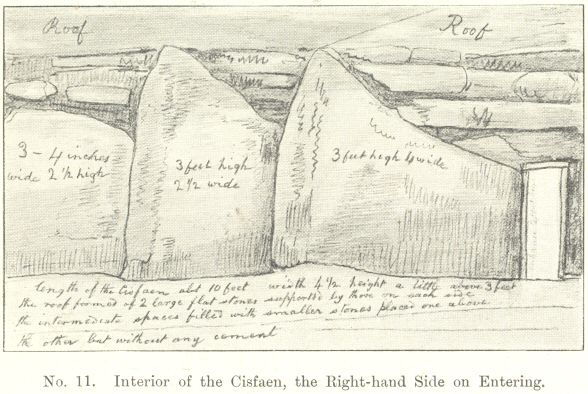 Roof
Roof
3 - 4 inches
wide 2 1/2 high
3 feet high
2 1/2 wide
3 feet high 4 wide
length of the Cisfaen abt 10 feet width 4 1/2 height a little above 3 feet
the roof formed of 2 large flat stones supported by three on each side
the intermediate spaces filled with smaller stones placed one above
the other but without any cement
No. 11. Interior of the Cisfaen, the Right-hand Side on Entering.